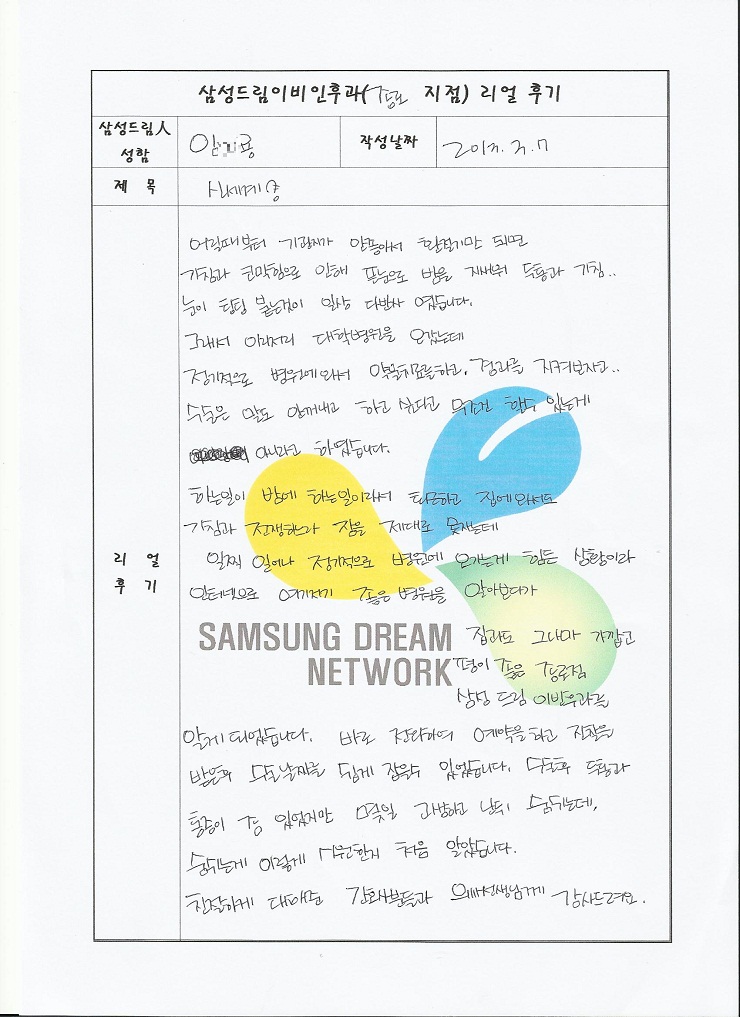 삼성드림이비인후과(종로 지점) 리얼 후기
삼성드림人 성함
작성날짜 2017.3.7
제 목 신세계
리 얼 후 기
어릴때부터 기관지가 안좋아서 환절기만 되면
기침과 코막힘으로 인해 뜬눈으로 밤을 지새워 두통과 기침..
눈이 팅팅 붓는것이 일상 다반사 였습니다.
그래서 이리저리 대학병원을 오갔는데
정기적으로 병원에 와서 약물치료를하고, 경과를 지켜보자고..
수술은 말도 안꺼내고 하고 싶다고 무조건 할수 있는게
아니라고 하였습니다.
하는일이 밤에 하는일이라서 퇴근하고 집에와서도
기침과 전쟁하느라 잠을 제대로 못자는데
일찍 일어나 정기적으로 병원에 오가는게 힘든 상황이라
인터넷으로 여기저기 좋은 병원을 알아보다가
SAMSUNG DREAM
NETWORK
집과도 그나마 가깝고
평이 좋은 종로점
삼성 드림 이비인후과를
알게 되었습니다. 바로 전화하여 예약을하고 진찰을
받은후 수술날짜를 쉽게 잡을수 있었습니다. 수술후 두통과
통증이 좀 있었지만 몇일 고생하고 난뒤 숨쉬는데,
숨쉬는게 이렇게 시원한지 처음 알았습니다.
친절하게 대해준 간호사분들과 의사선생님께 감사드려요.